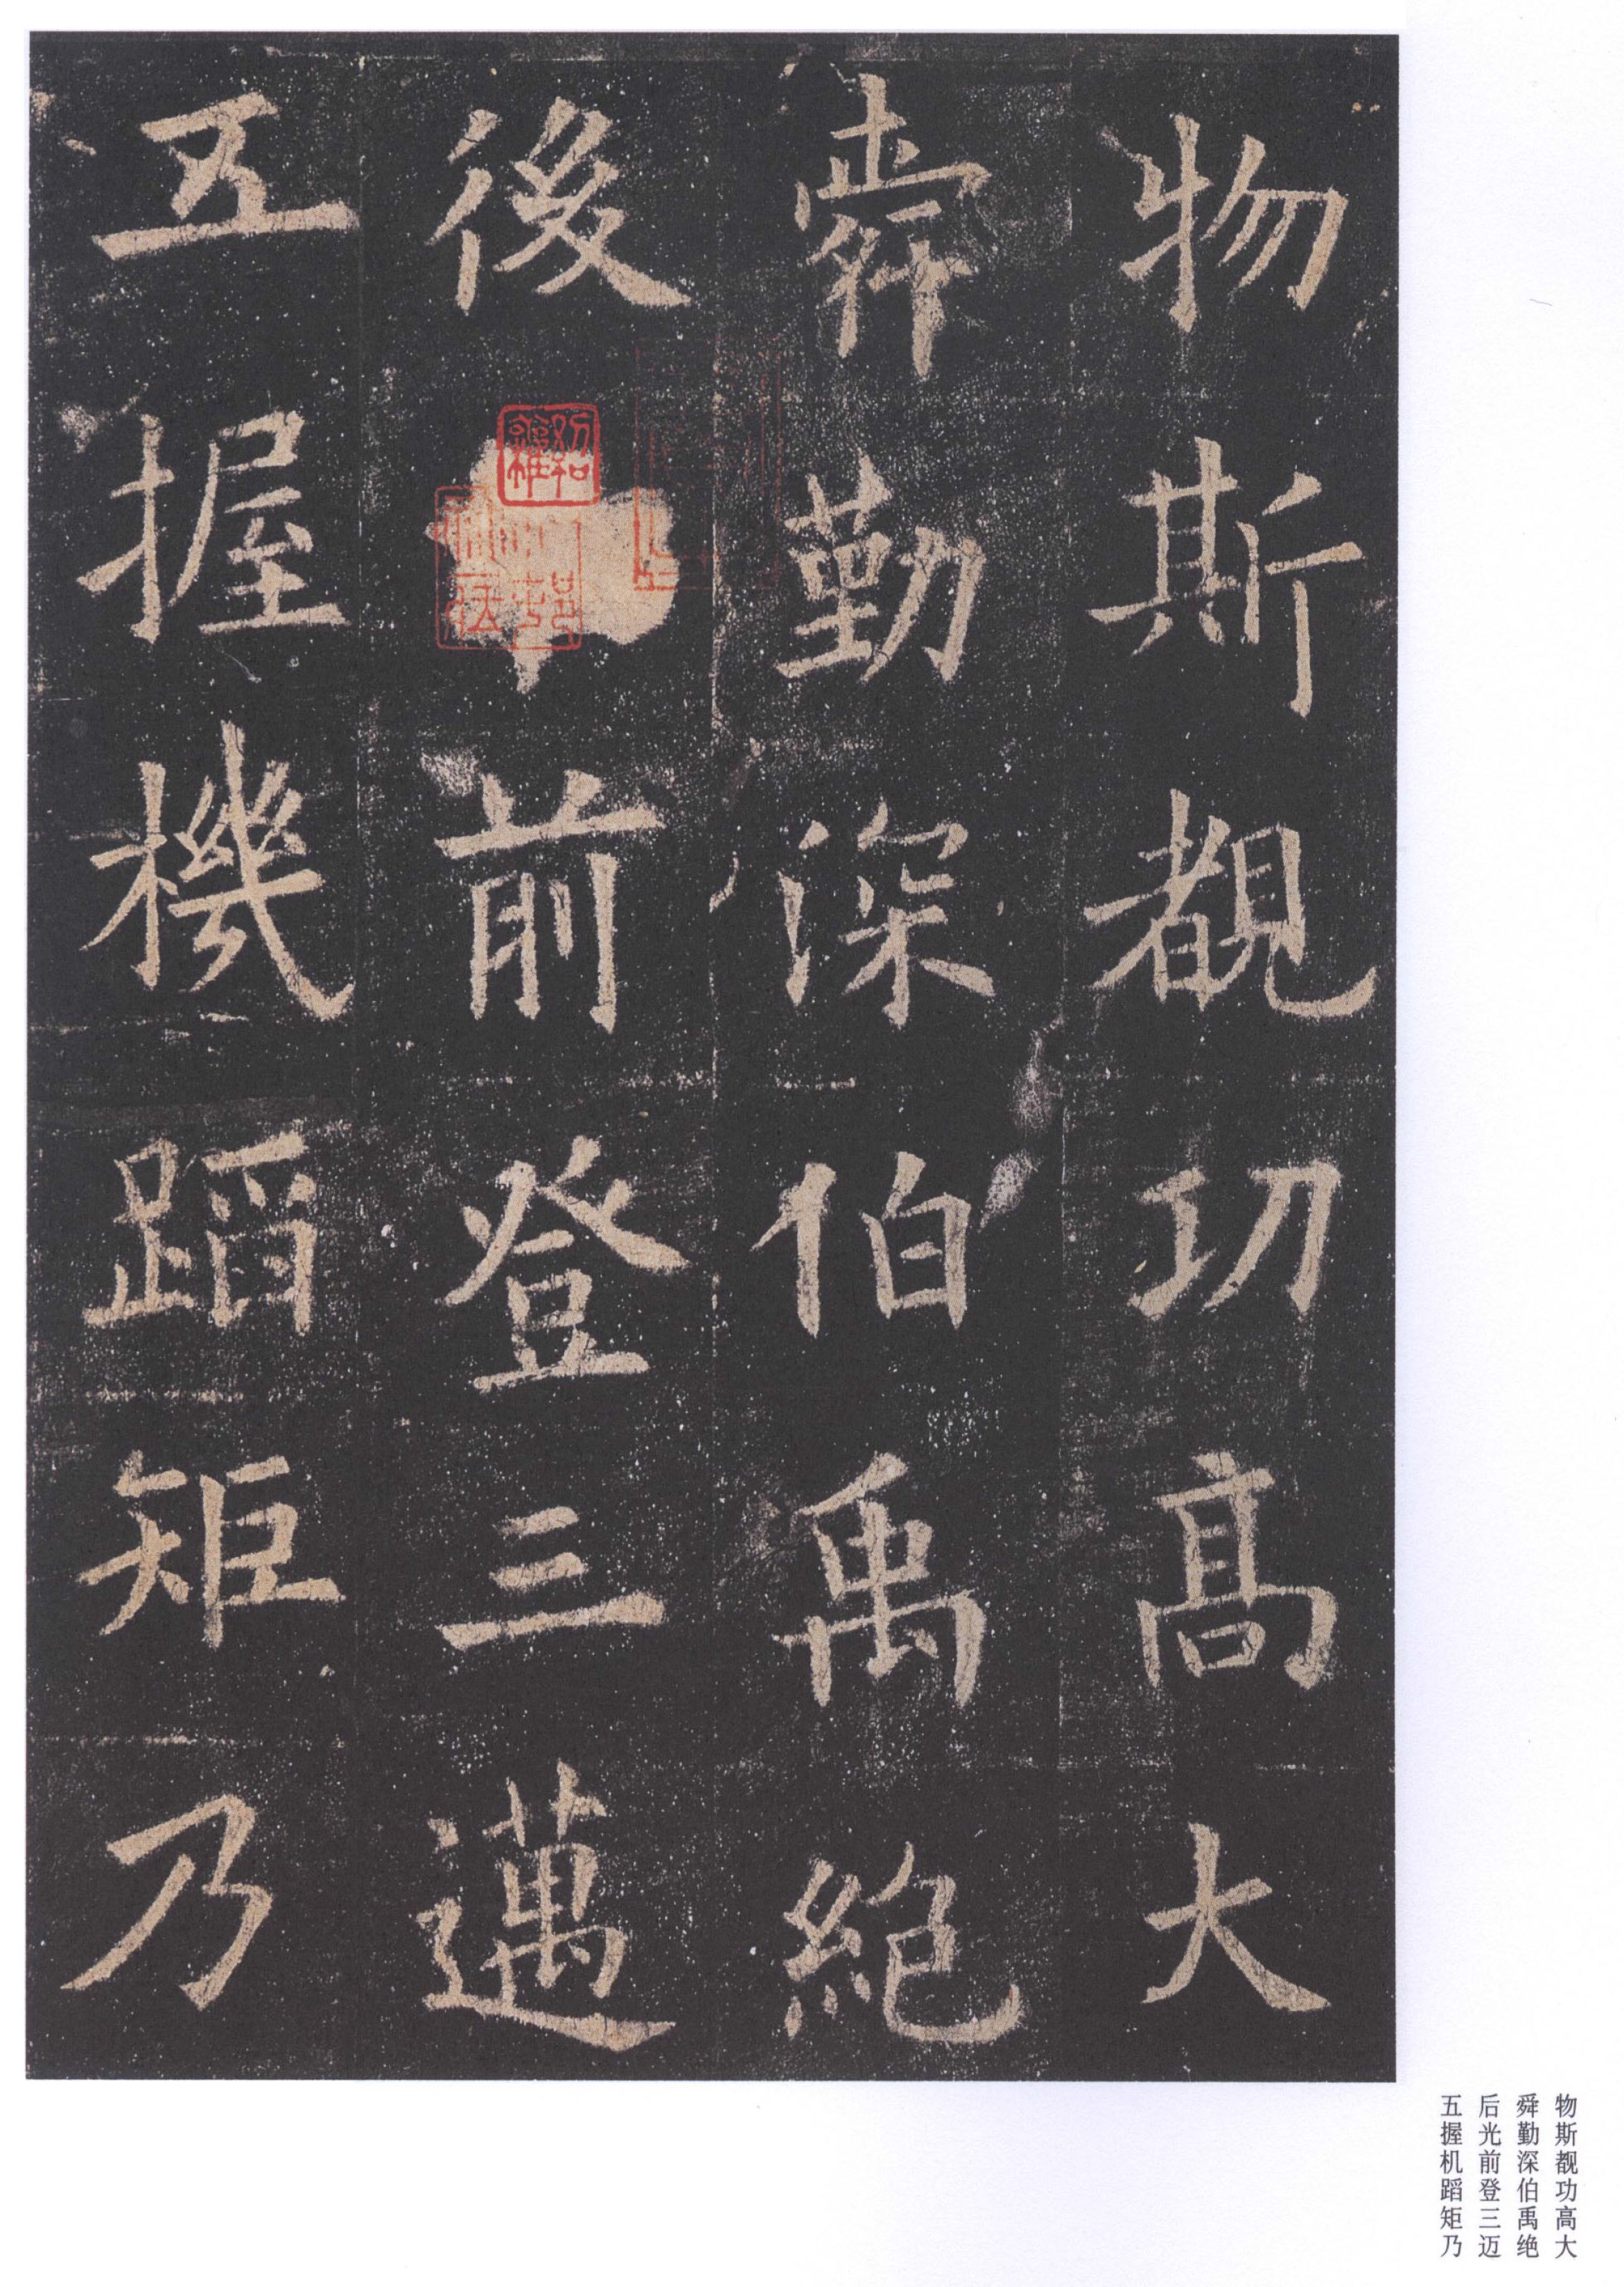 物斯覩功高大
舜勤深伯禹絶
後前登三邁
五握機蹈矩乃
物斯觏功高大
舜勤深伯禹绝
后光前登三迈
五握机蹈矩乃